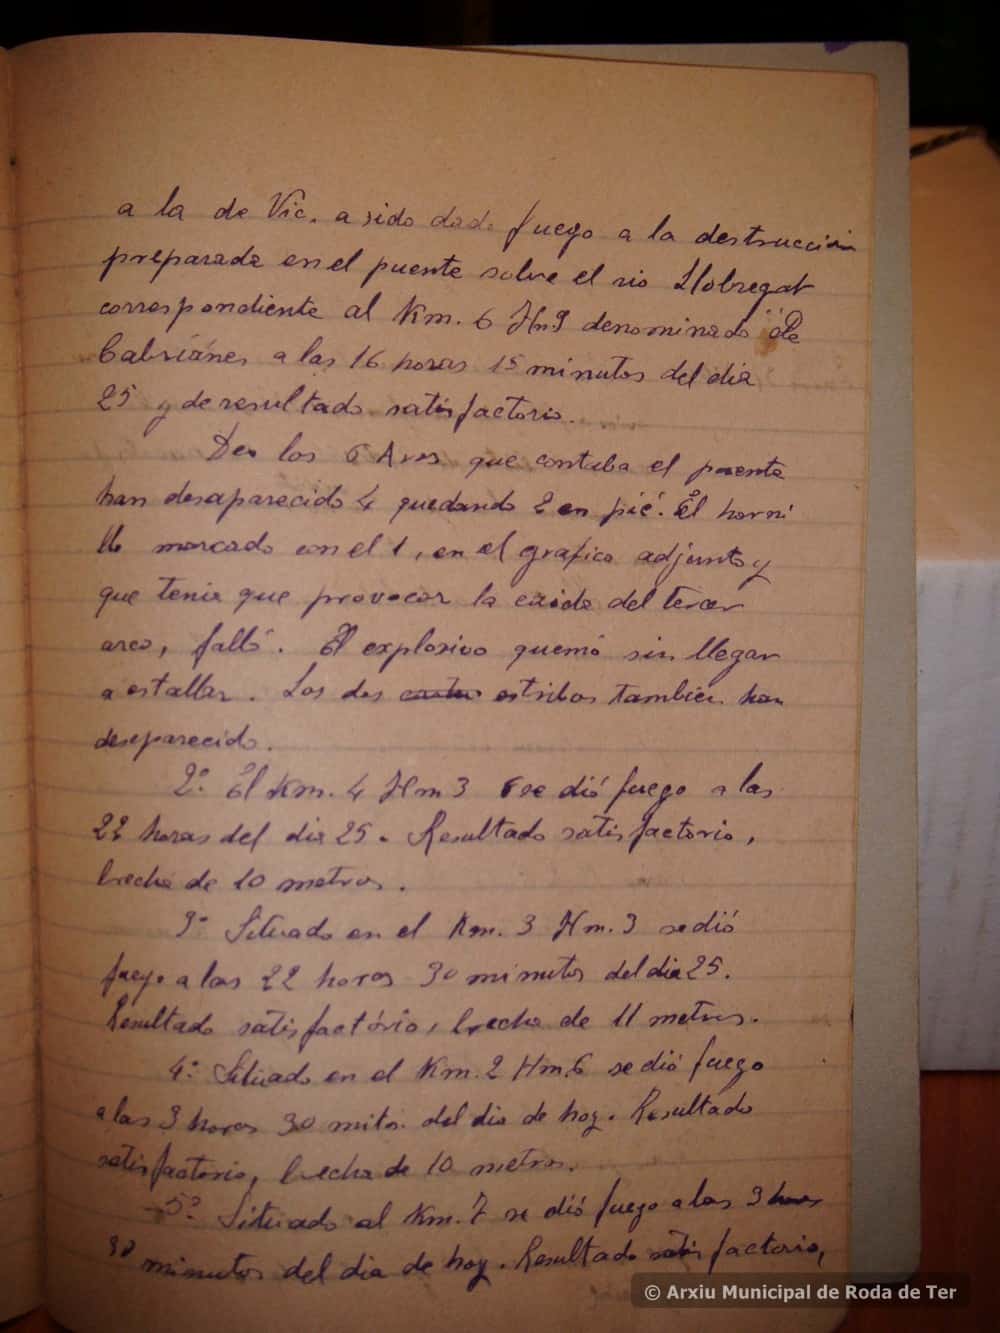 a la de Vic. a sido dado fuego a la destrucción
preparada en el puente sobre el rio Llobregat
correspondiente al Km. 6 Hm 9 denominado de
Cabrianes a las 16 horas 15 minutos del dia
25 y de resultado satisfactorio.
De los 6 Arcos que contaba el puente
han desaparecido 4 quedando 2 en pié. El horni
llo marcado con el 1, en el grafico adjunto y
que tenia que provocar la caida del tercer
arco, falló. El explosivo quemó sin llegar
a estallar. Los dos estribos tambien han
desaparecido.
2º El Km. 4 Hm 3 se dió fuego a las
22 horas del dia 25. Resultado satisfactorio,
brecha de 10 metros.
3º Situado en el Km. 3 Hm. 3 se dió
fuego a las 22 horas 30 minutos del dia 25.
Resultado satisfactório, brecha de 11 metros.
4º Situado en el Km. 2 Hm. 6 se dió fuego
a las 3 horas 30 mitos. del dia de hoy. Resultado
satisfactorio, brecha de 10 metros.
5º Situado al Km. 7 se dió fuego a las 3 horas
30 minutos del dia de hoy. Resultado satisfactorio,
© Arxiu Municipal de Roda de Ter